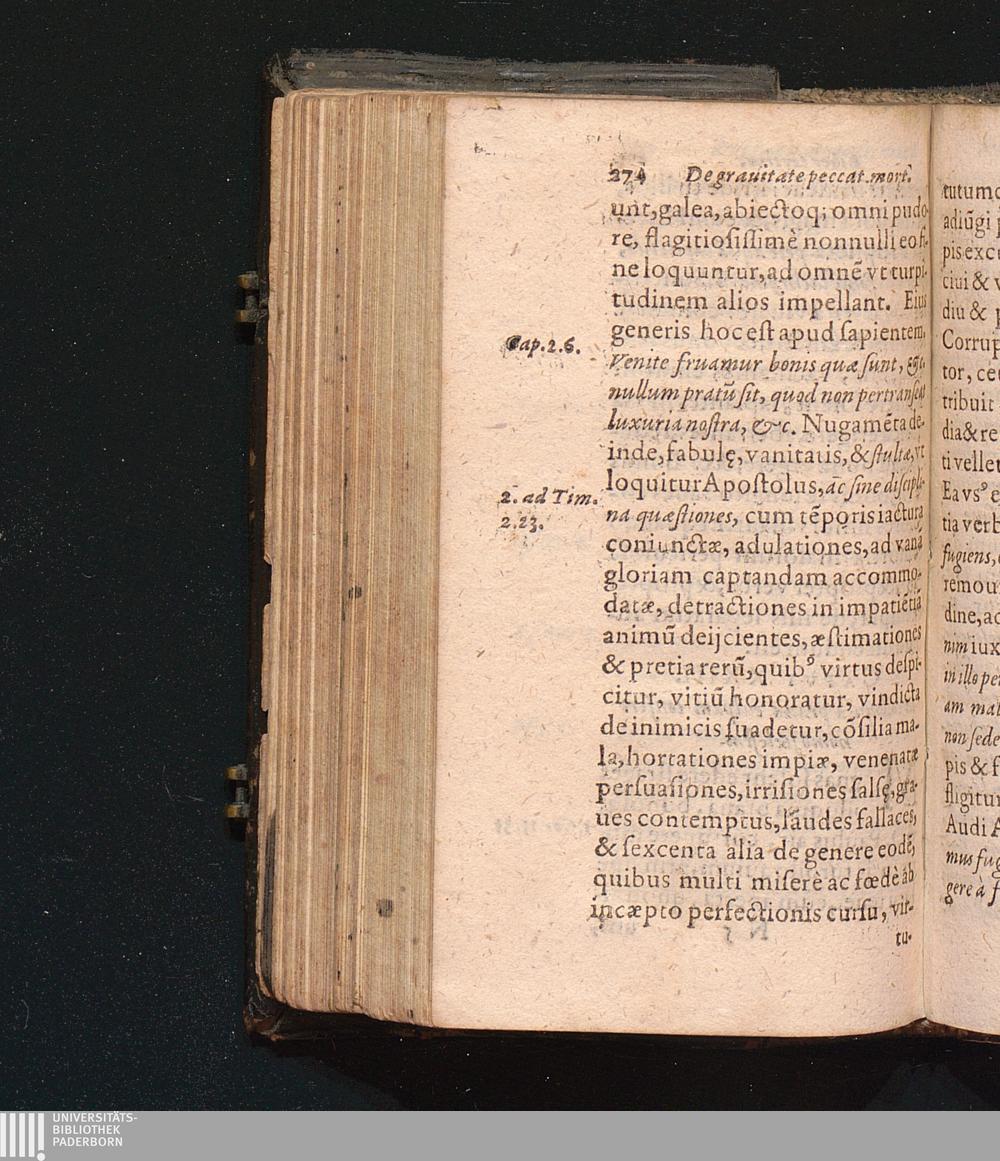 274 De grauitate peccat. mort.
unt, galea, abiectoq; omni pudo-
re, flagitiosissimè nonnulli eo fi-
ne loquuntur, ad omnē vt turpi-
tudinem alios impellant. Eius
generis hoc est apud sapientem,
Cap. 2. 6.
Venite fruamur bonis quæ sunt, &c.
nullum pratū sit, quod non pertranseat
luxuria nostra, &c. Nugamēta de-
inde, fabulę, vanitatis, & stultæ, vt
2. ad Tim.
2. 23.
loquitur Apostolus, ac sine discipli-
na quæstiones, cum tēporis iactura
coniunctæ, adulationes, ad vanā
gloriam captandam accommo-
datæ, detractiones in impatiētiā
animū deijcientes, æstimationes
& pretia rerū, quibꝰ virtus despi-
citur, vitiū honoratur, vindicta
de inimicis suadetur, cōsilia ma-
la, hortationes impiæ, venenatæ
persuasiones, irrisiones falsę, gra-
ues contemptus, laudes fallaces,
& sexcenta alia de genere eodē,
quibus multi miserè ac fœdè ab
incæpto perfectionis cursu, vir-
tu-
tutumq
adiūgi
pis exc
ciui & v
diu & p
Corrup
tor, ce
tribuit
dia & re
ti velle
Ea vsꝰ e
tia verb
fugiens,
remou
dine, ac
nim iux
in illo pe
am mal
non sede
pis & f
fligitur
Audi A
mus fug
gere à f
UNIVERSITÄTS-
BIBLIOTHEK
PADERBORN